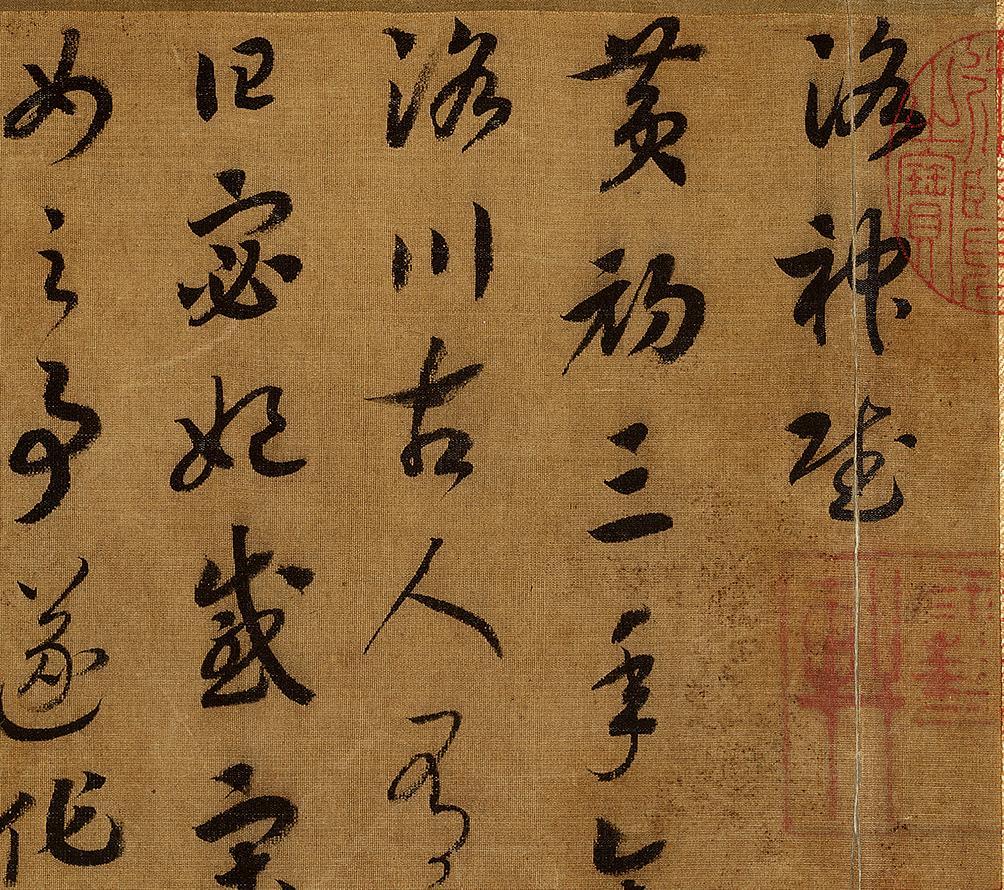 洛神賦
黃初三年
洛川古人有
曰宓妃感宋
女之事遂作